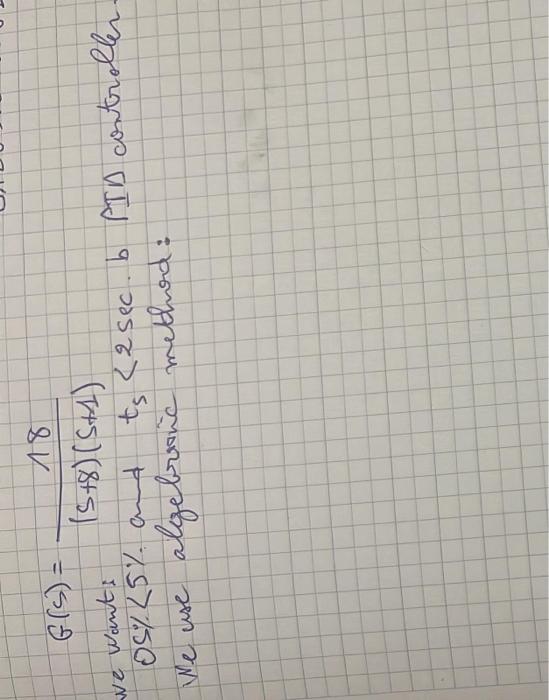 G(s) = 18
(s+8)(s+1)
we want:
OS% < 5% and ts < 2 sec. b PID controller.
We use algebraic method: